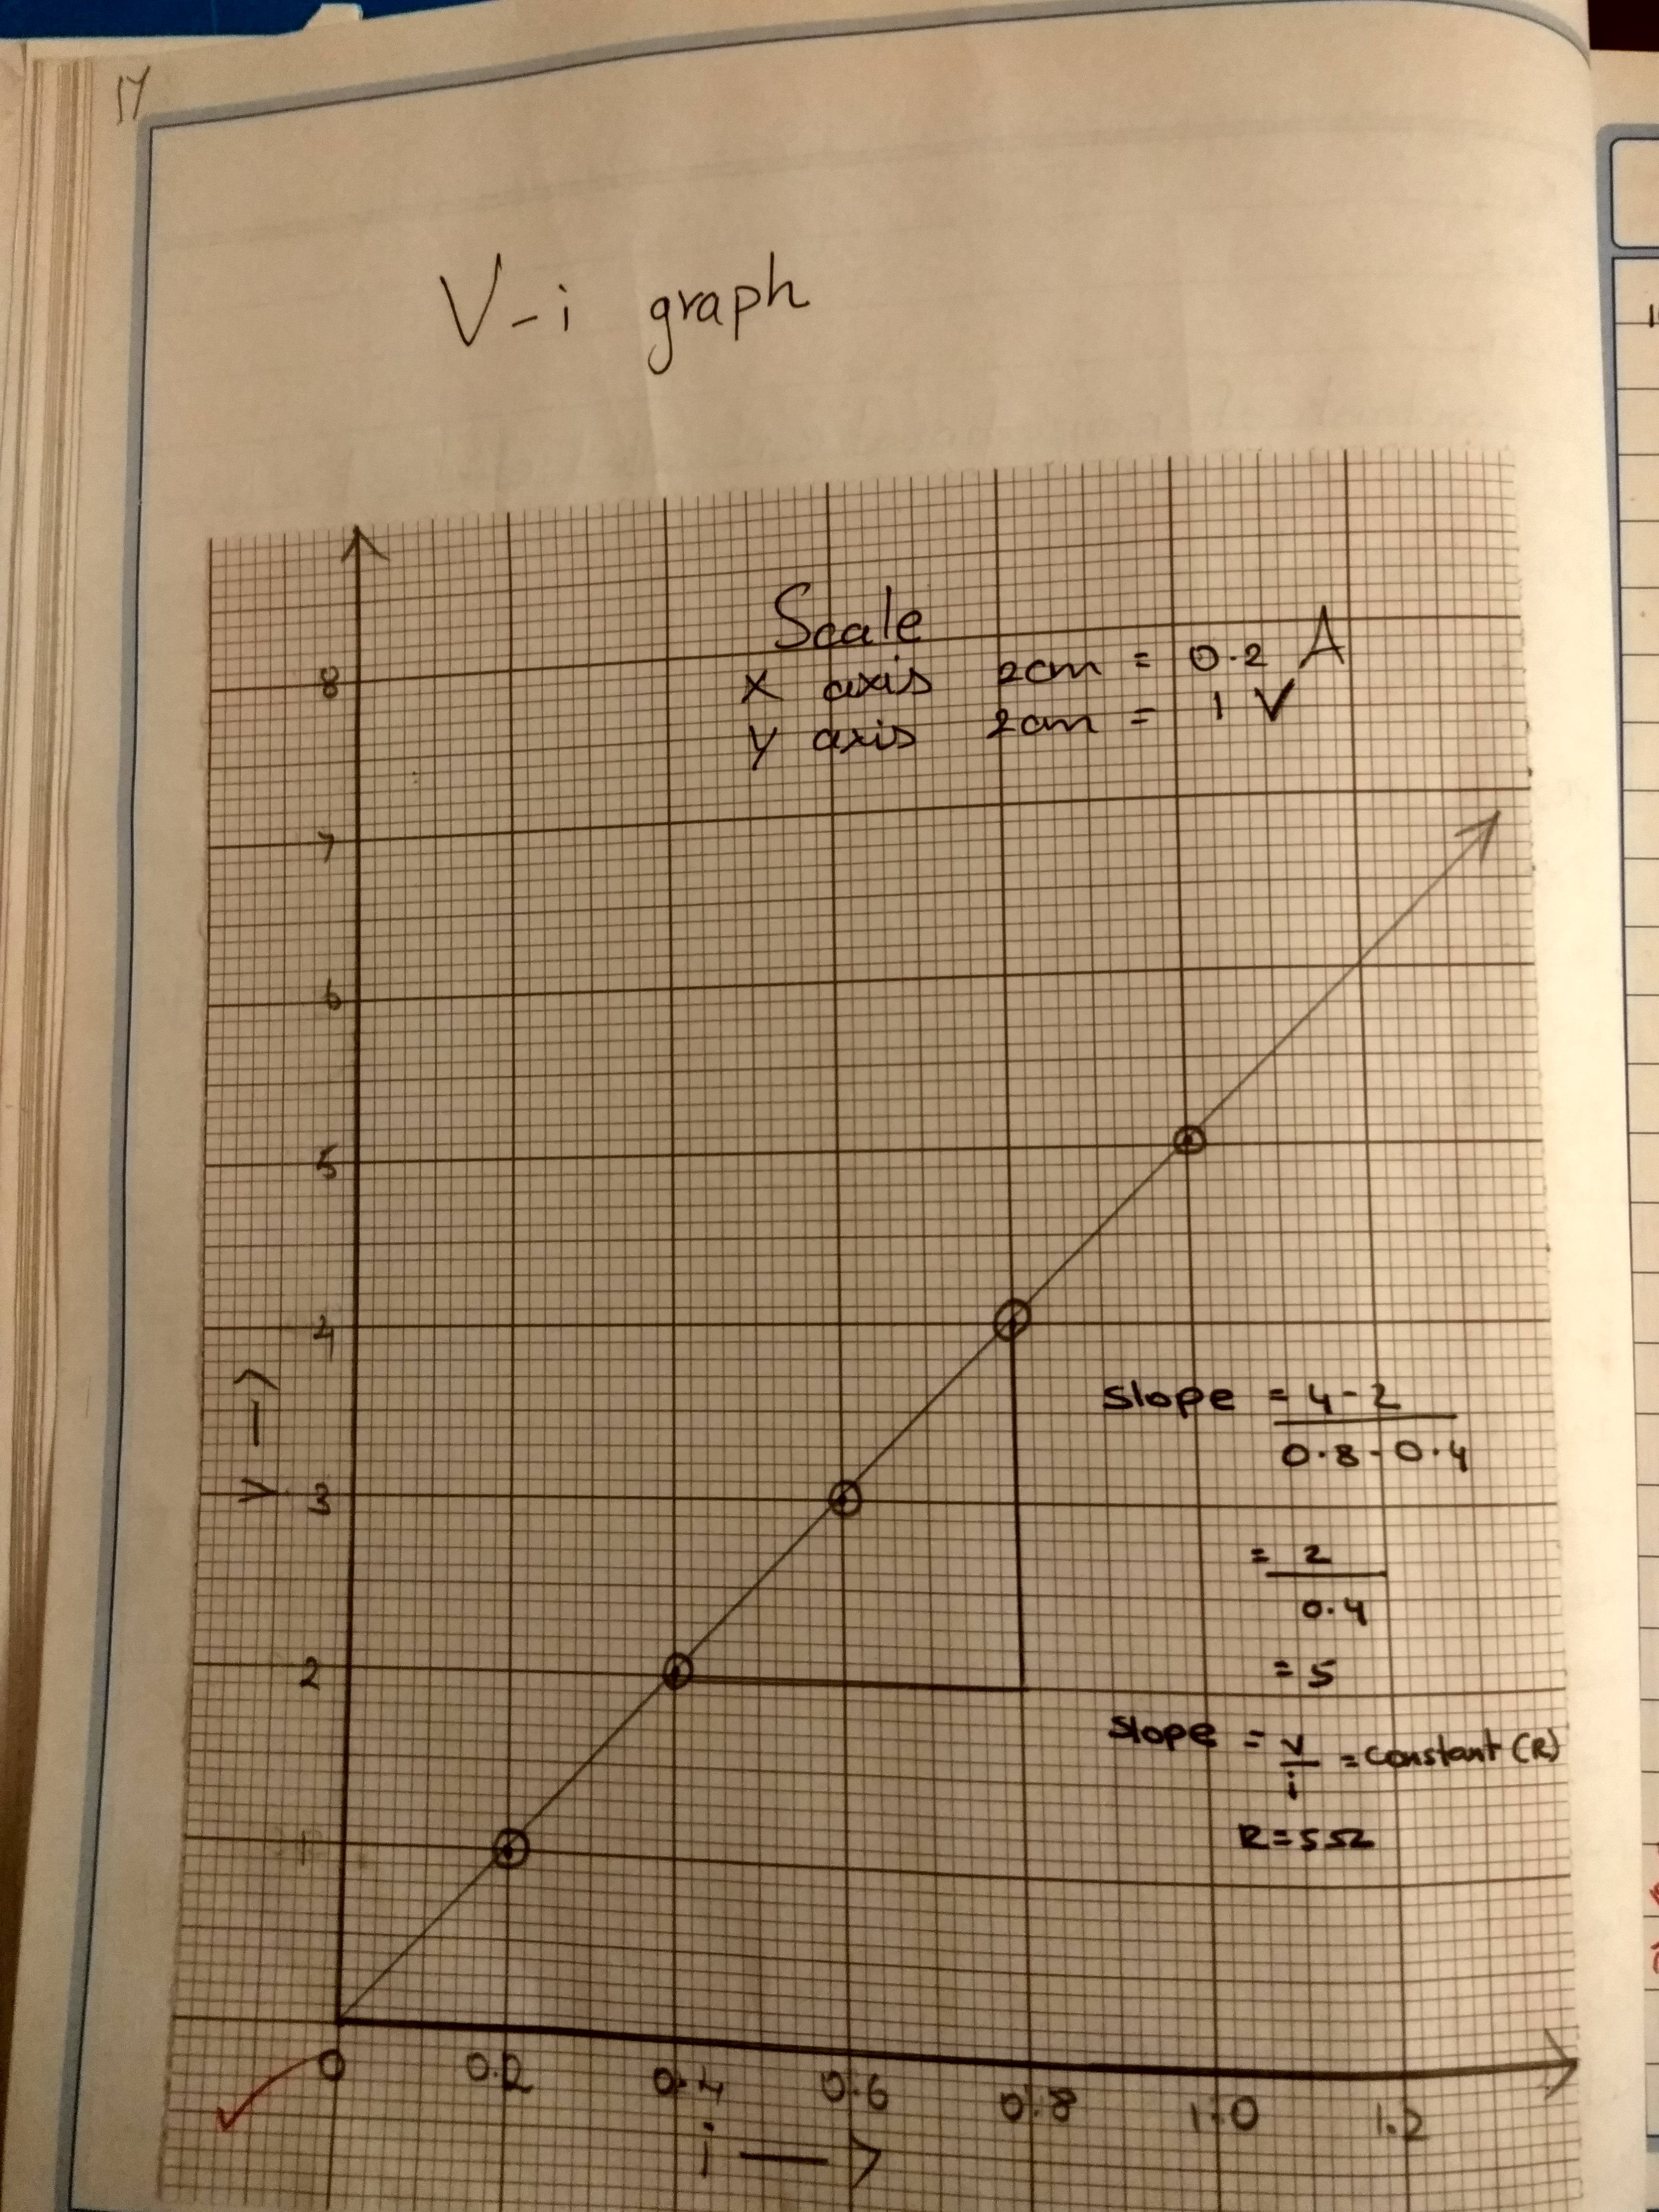 17
V-i graph
Scale
X axis 2cm = 0.2 A
Y axis 2cm = 1 V
8
7
6
5
4
3
2
1
V →
slope = 4-2
0.8-0.4
= 2
0.4
= 5
slope = V
i
= constant (R)
R=5Ω
0 0.2 0.4 0.6 0.8 1.0 1.2
i →